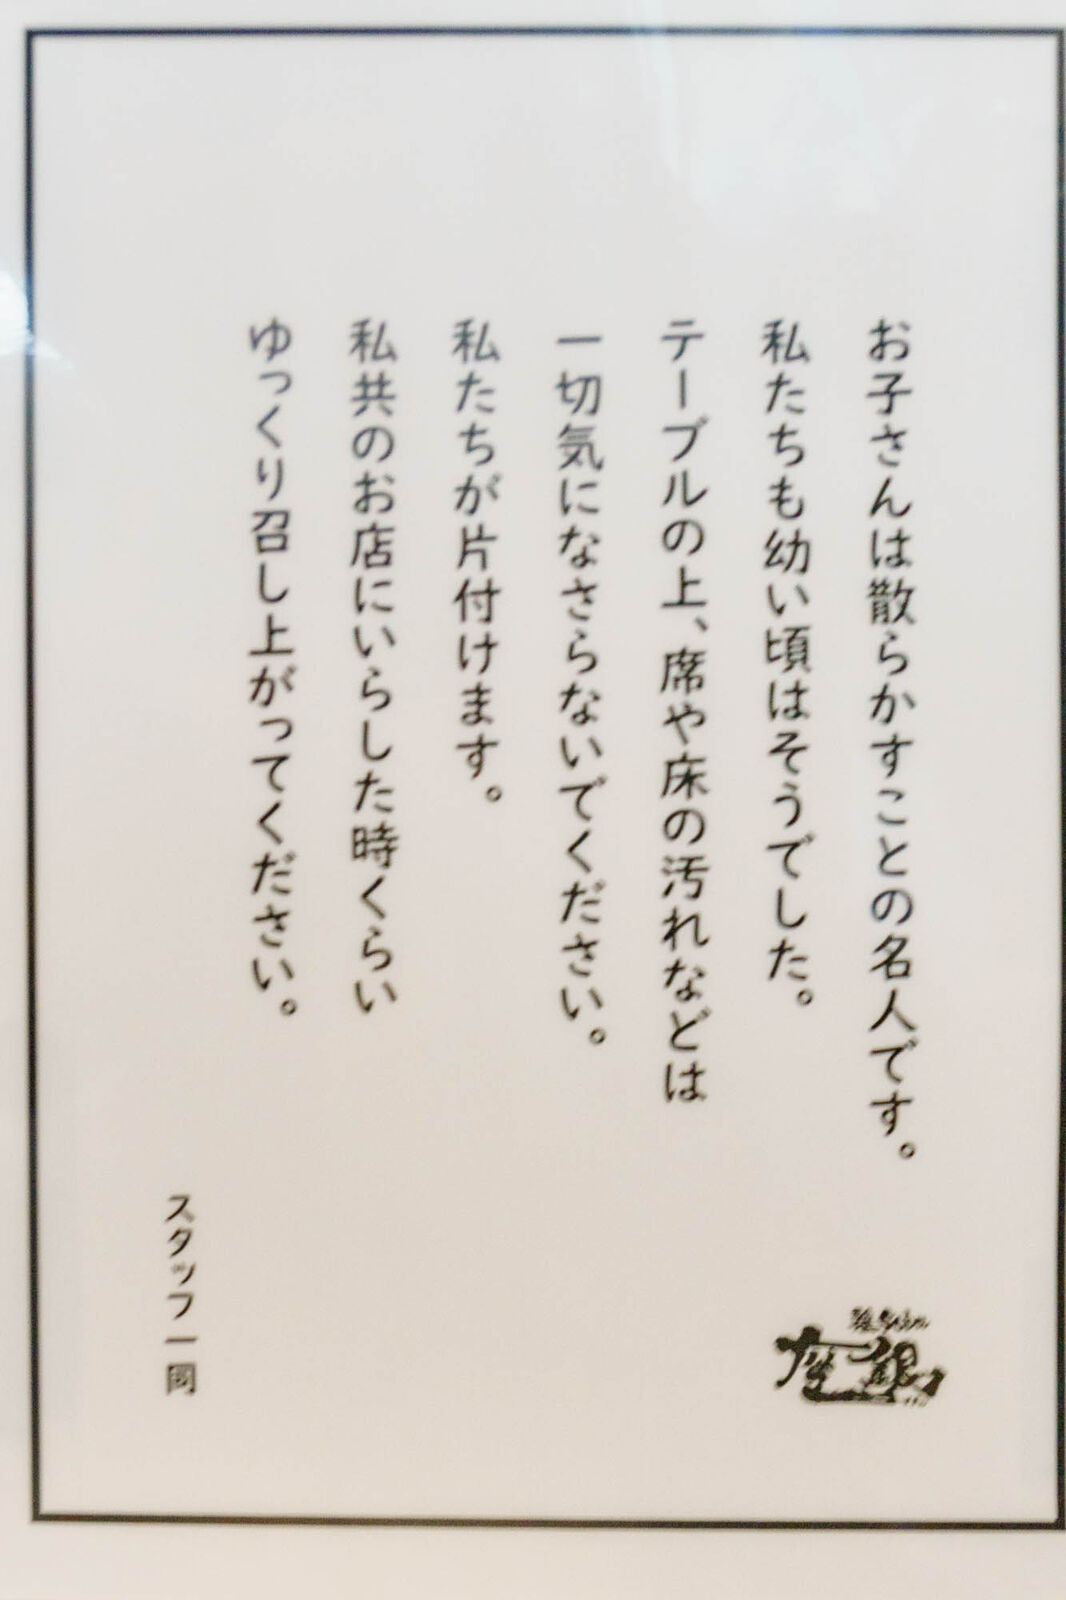 お子さんは散らかすことの名人です。
私たちも幼い頃はそうでした。
テーブルの上、席や床の汚れなどは
一切気になさらないでください。
私たちが片付けます。
私共のお店にいらした時くらい
ゆっくり召し上がってください。
スタッフ一同
座銀